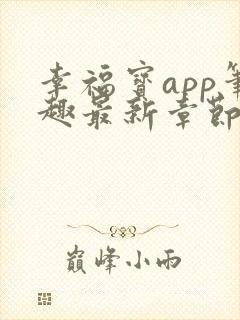 幸福宝app笔
趣最新章节
巅峰小雨